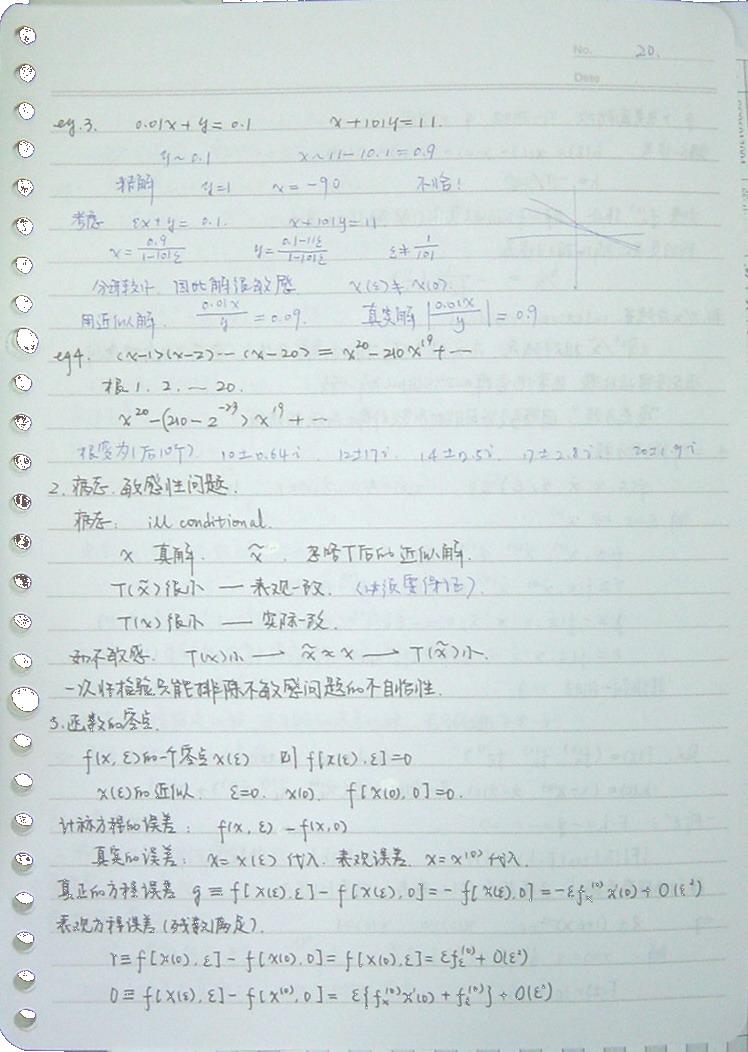 No. 20.
Date
eg.3. 0.01x+y=0.1 x+101y=11.
y~0.1 x~11-10.1=0.9
精解 y=1 x=-90 不合!
考虑 εx+y=0.1. x+101y=11
x=0.9/(1-101ε) y=(0.1-11ε)/(1-101ε) ε≠1/101
分母较小, 因此解很敏感. x(ε)≠x(0).
用近似解. 0.01x/y=0.09. 真实解 |0.01x/y|=0.9
eg4. (x-1)(x-2)…(x-20)=x^20-210x^19+…
根 1. 2. … 20.
x^20-(210-2^-23)x^19+…
根变为(后10个) 10±0.64i 12±17i. 14±2.5i. 17±2.8i. 20±1.9i
2. 病态. 敏感性问题.
病态: ill conditional.
x 真解. x̃. 忽略T后的近似解.
T(x̃)很小 — 表观一致. (必须要保证).
T(x)很小 — 实际一致.
如不敏感. T(x)小 → x̃≈x → T(x̃)小.
一次性检验只能排除不敏感问题的不自恰性.
3. 函数的零点.
f(x, ε)的一个零点x(ε) 则 f[x(ε), ε]=0
x(ε)的近似. ε=0. x(0). f[x(0), 0]=0.
计称方程的误差: f(x, ε)-f(x, 0)
真实的误差: x=x(ε)代入. 表观误差. x=x^(0)代入.
真正的方程误差 g≡f[x(ε), ε]-f[x(ε), 0]=-f[x(ε), 0]=-εf_x^(0) x'(0)+O(ε²)
表观方程误差(残数)满足).
r≡f[x(0), ε]-f[x(0), 0]=f[x(0), ε]=εf_ε^(0)+O(ε²)
0≡f[x(ε), ε]-f[x^(0), 0]=ε{f_x^(0)x'(0)+f_ε^(0)}+O(ε²)